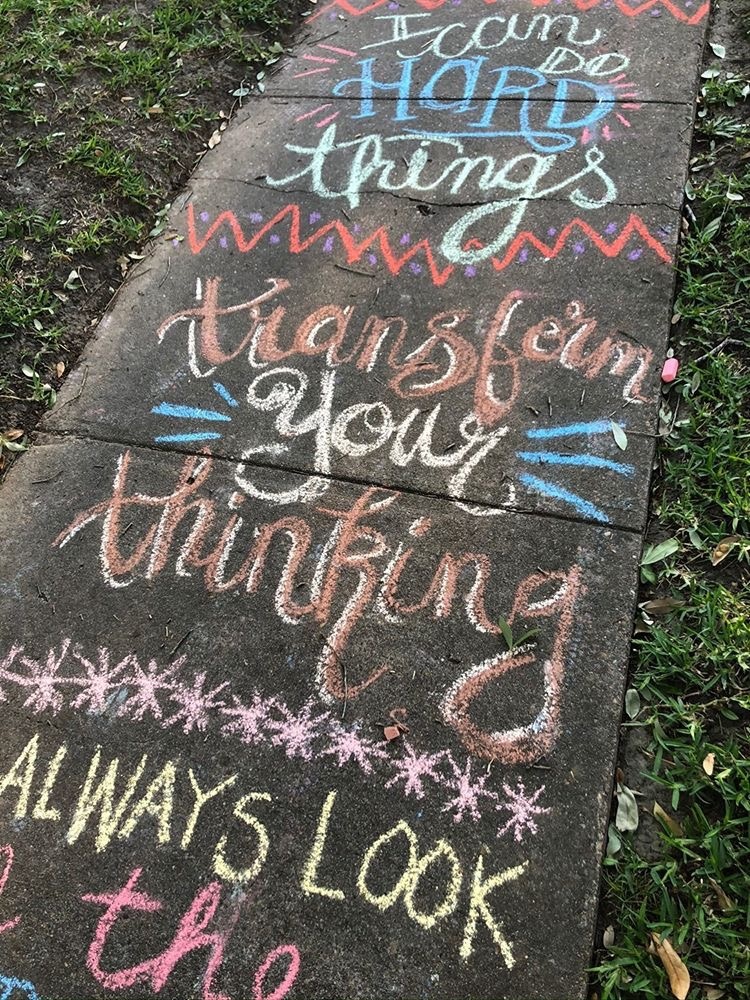 I can
DO
HARD
things
transform
Your
thinking
ALWAYS LOOK
the